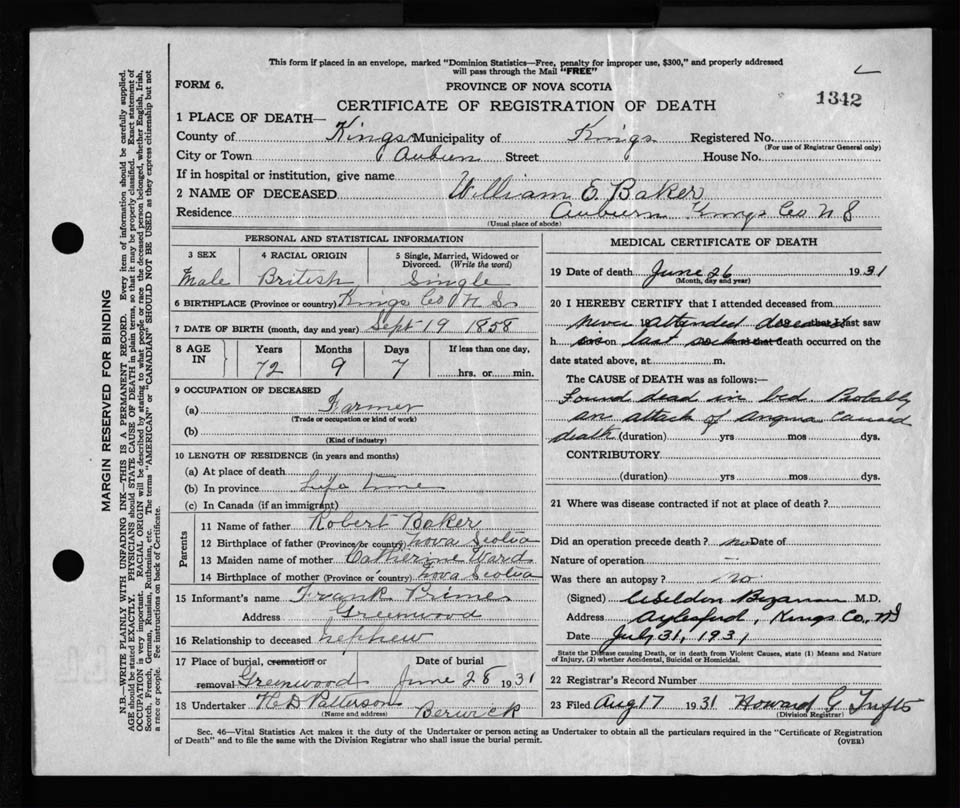 This form if placed in an envelope, marked "Dominion Statistics—Free, penalty for improper use, $300," and properly addressed
will pass through the Mail "FREE"
FORM 6.
PROVINCE OF NOVA SCOTIA
CERTIFICATE OF REGISTRATION OF DEATH
1342
1 PLACE OF DEATH—
County of Kings Municipality of Kings Registered No.
(For use of Registrar General only)
City or Town Auburn Street House No.
If in hospital or institution, give name
2 NAME OF DECEASED William E. Baker
Residence Auburn Kings Co. N S
(Usual place of abode)
MARGIN RESERVED FOR BINDING
N.B.—WRITE PLAINLY WITH UNFADING INK—THIS IS A PERMANENT RECORD. Every item of information should be carefully supplied.
AGE should be stated EXACTLY. PHYSICIANS should STATE CAUSE OF DEATH in plain terms, so that it may be properly classified. Exact statement of
OCCUPATION is very important. RACIAL ORIGIN will be described by stating to what people or race the deceased person belonged, whether English, Irish,
Scotch, French, German, Russian, Ruthenian, etc. The terms "AMERICAN" or "CANADIAN" SHOULD NOT BE USED as they express citizenship but not
a race or people. Fee instructions on back of Certificate.
PERSONAL AND STATISTICAL INFORMATION
3 SEX Male
4 RACIAL ORIGIN British
5 Single, Married, Widowed or
Divorced. (Write the word)
Single
6 BIRTHPLACE (Province or country) Kings Co N S.
7 DATE OF BIRTH (month, day and year) Sept 19 1858
8 AGE IN
Years Months Days If less than one day,
72 9 7 hrs. or min.
9 OCCUPATION OF DECEASED
(a) Farmer
(Trade or occupation or kind of work)
(b)
(Kind of industry)
10 LENGTH OF RESIDENCE (in years and months)
(a) At place of death
(b) In province Life time
(c) In Canada (if an immigrant)
Parents
11 Name of father Robert Baker
12 Birthplace of father (Province or country) Nova Scotia
13 Maiden name of mother Catherine Ward
14 Birthplace of mother (Province or country) Nova Scotia
15 Informant's name Frank
Address Greenwood
16 Relationship to deceased nephew
17 Place of burial, cremation or Date of burial
removal Greenwood June 28 1931
18 Undertaker H D Patterson Berwick
(Name and address)
MEDICAL CERTIFICATE OF DEATH
19 Date of death June 26 1931
(Month, day and year)
20 I HEREBY CERTIFY that I attended deceased from
never attended that I last saw
h on death occurred on the
date stated above, at m.
The CAUSE of DEATH was as follows:—
Found dead in bed Probably
an attack of Angina caused
death (duration) yrs mos dys.
CONTRIBUTORY
(duration) yrs mos dys.
21 Where was disease contracted if not at place of death?
Did an operation precede death? no Date of
Nature of operation —
Was there an autopsy? no
(Signed) M.D.
Address Aylesford, Kings Co., NS
Date July 31, 1931
State the Disease causing Death, or in death from Violent Causes, state (1) Means and Nature
of Injury, (2) whether Accidental, Suicidal or Homicidal.
22 Registrar's Record Number
23 Filed Aug 17 1931 Howard G Tufts
(Division Registrar)
Sec. 46—Vital Statistics Act makes it the duty of the Undertaker or person acting as Undertaker to obtain all the particulars required in the "Certificate of Registration
of Death" and to file the same with the Division Registrar who shall issue the burial permit.
(OVER)